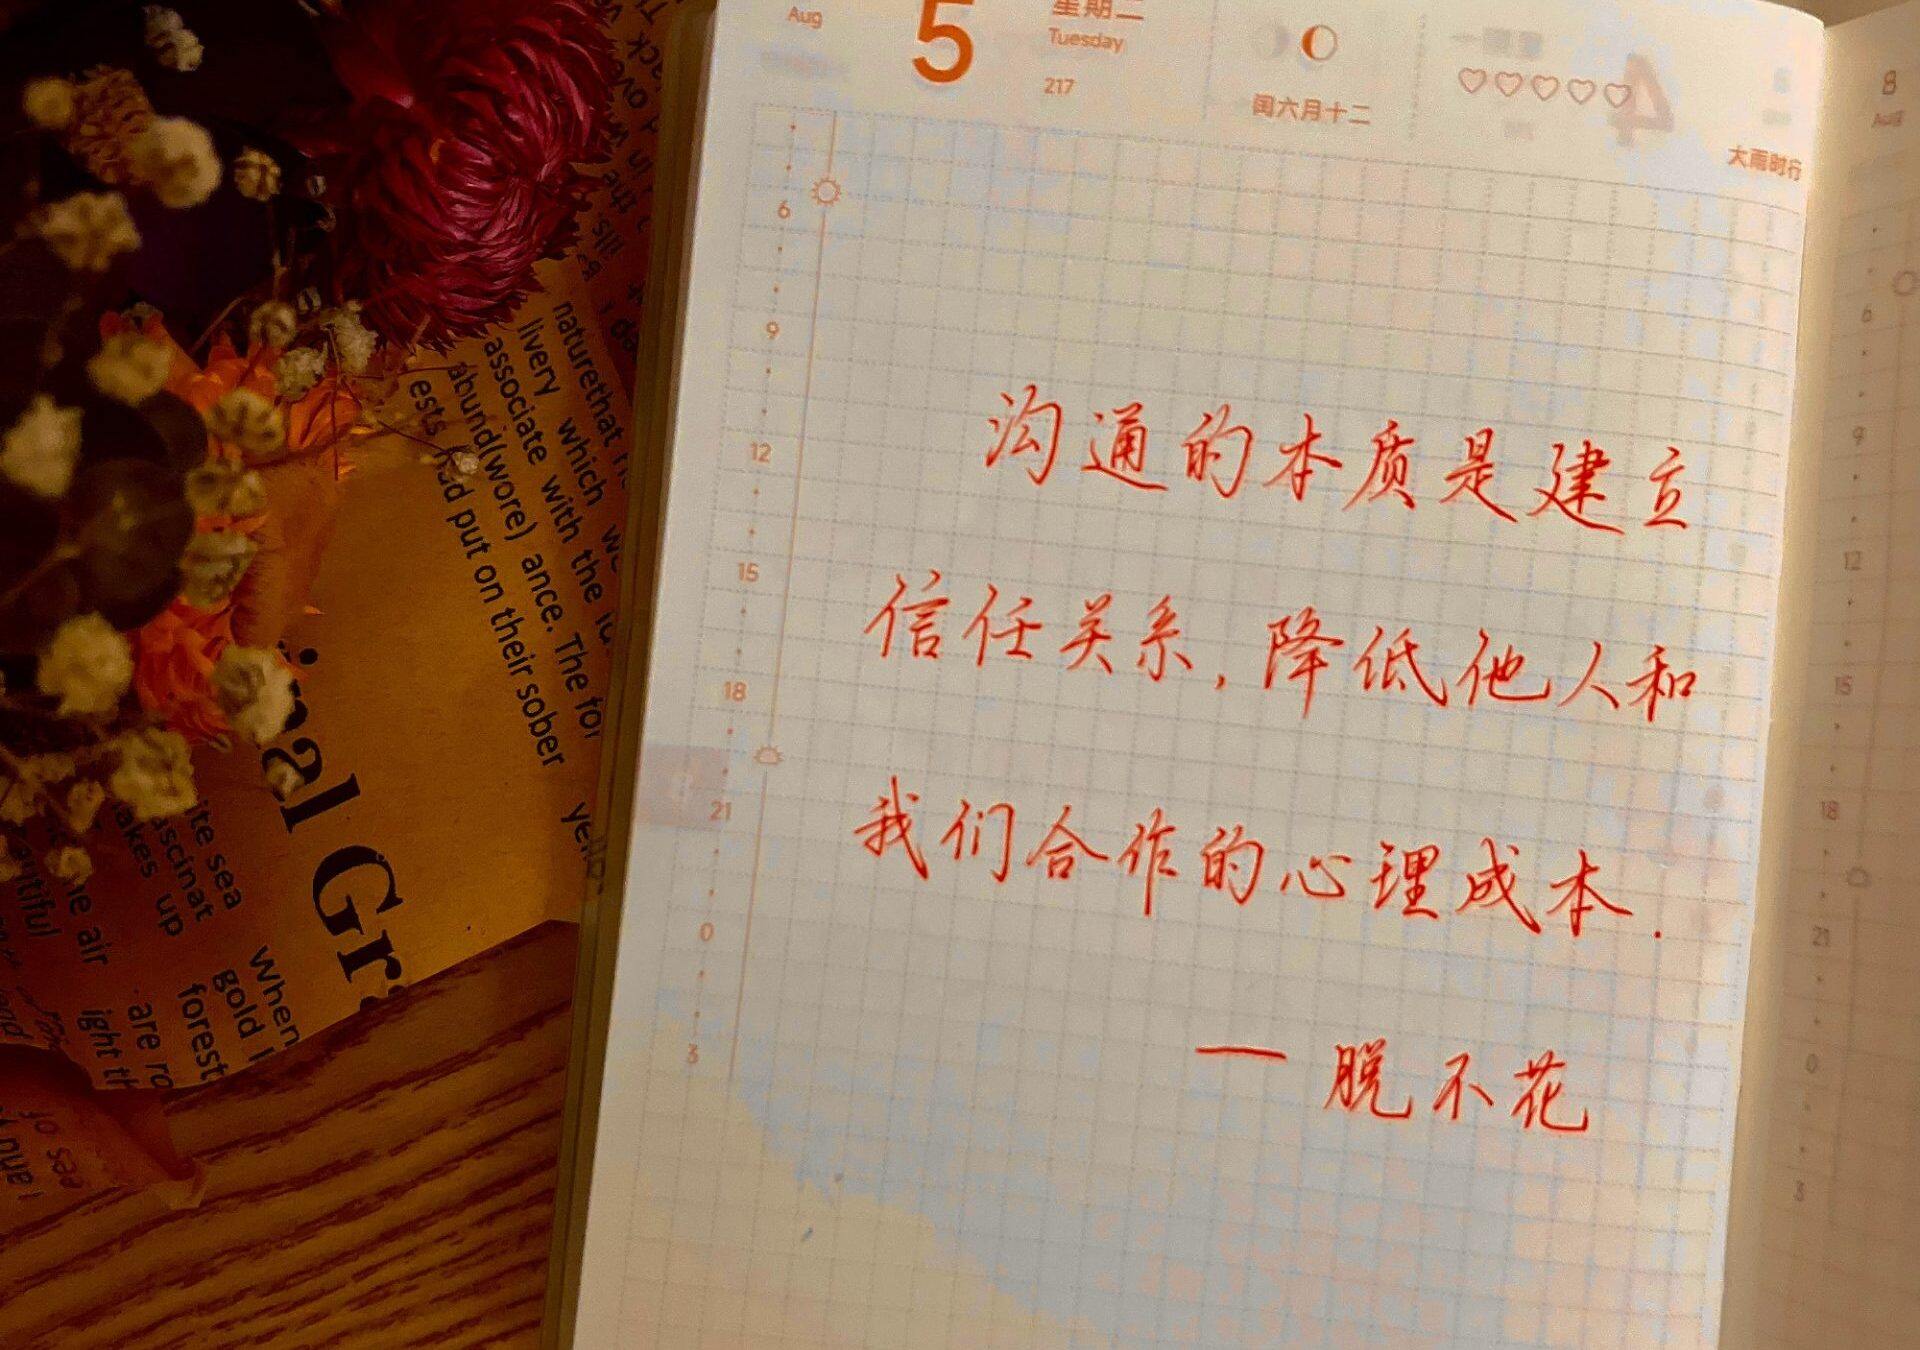 Aug
5
星期二
Tuesday
217
闰六月十二
4
大雨时行
6
9
12
15
18
21
0
3
沟通的本质是建立
信任关系，降低他人和
我们合作的心理成本.
— 脱不花
8
Aug
6
9
12
15
18
21
0
3
naturethat
livery which
associate with the
abund(wore) ance. The for
ests had put on their sober
yello-
al Gr
ite sea
ascinat
akes up
he air
When
gold
forest
are ro
ight th